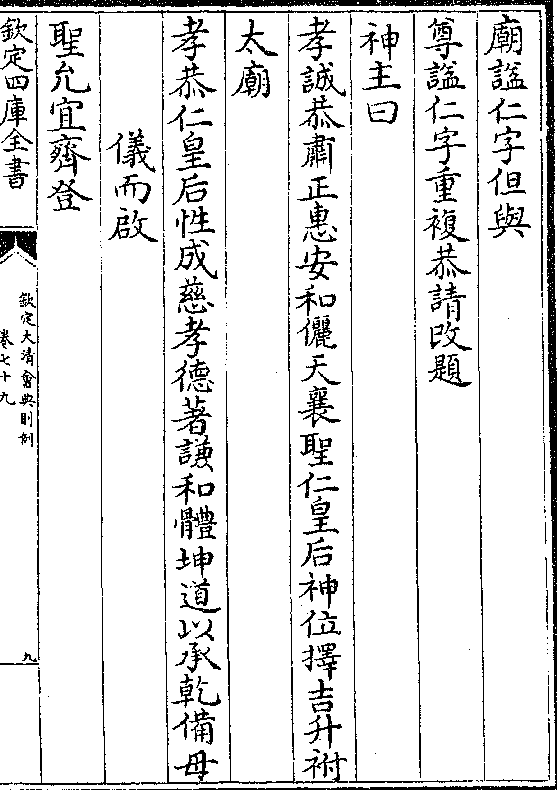 廟諡仁字但與
尊諡仁字重複恭請改題
神主曰
孝誠恭肅正惠安和儷天襄聖仁皇后神位擇吉升祔
太廟
孝恭仁皇后性成慈孝德著謙和體坤道以承乾備母
儀而啟
聖允宜齊登
欽定四庫全書
欽定大清會典則例
卷七十九
九